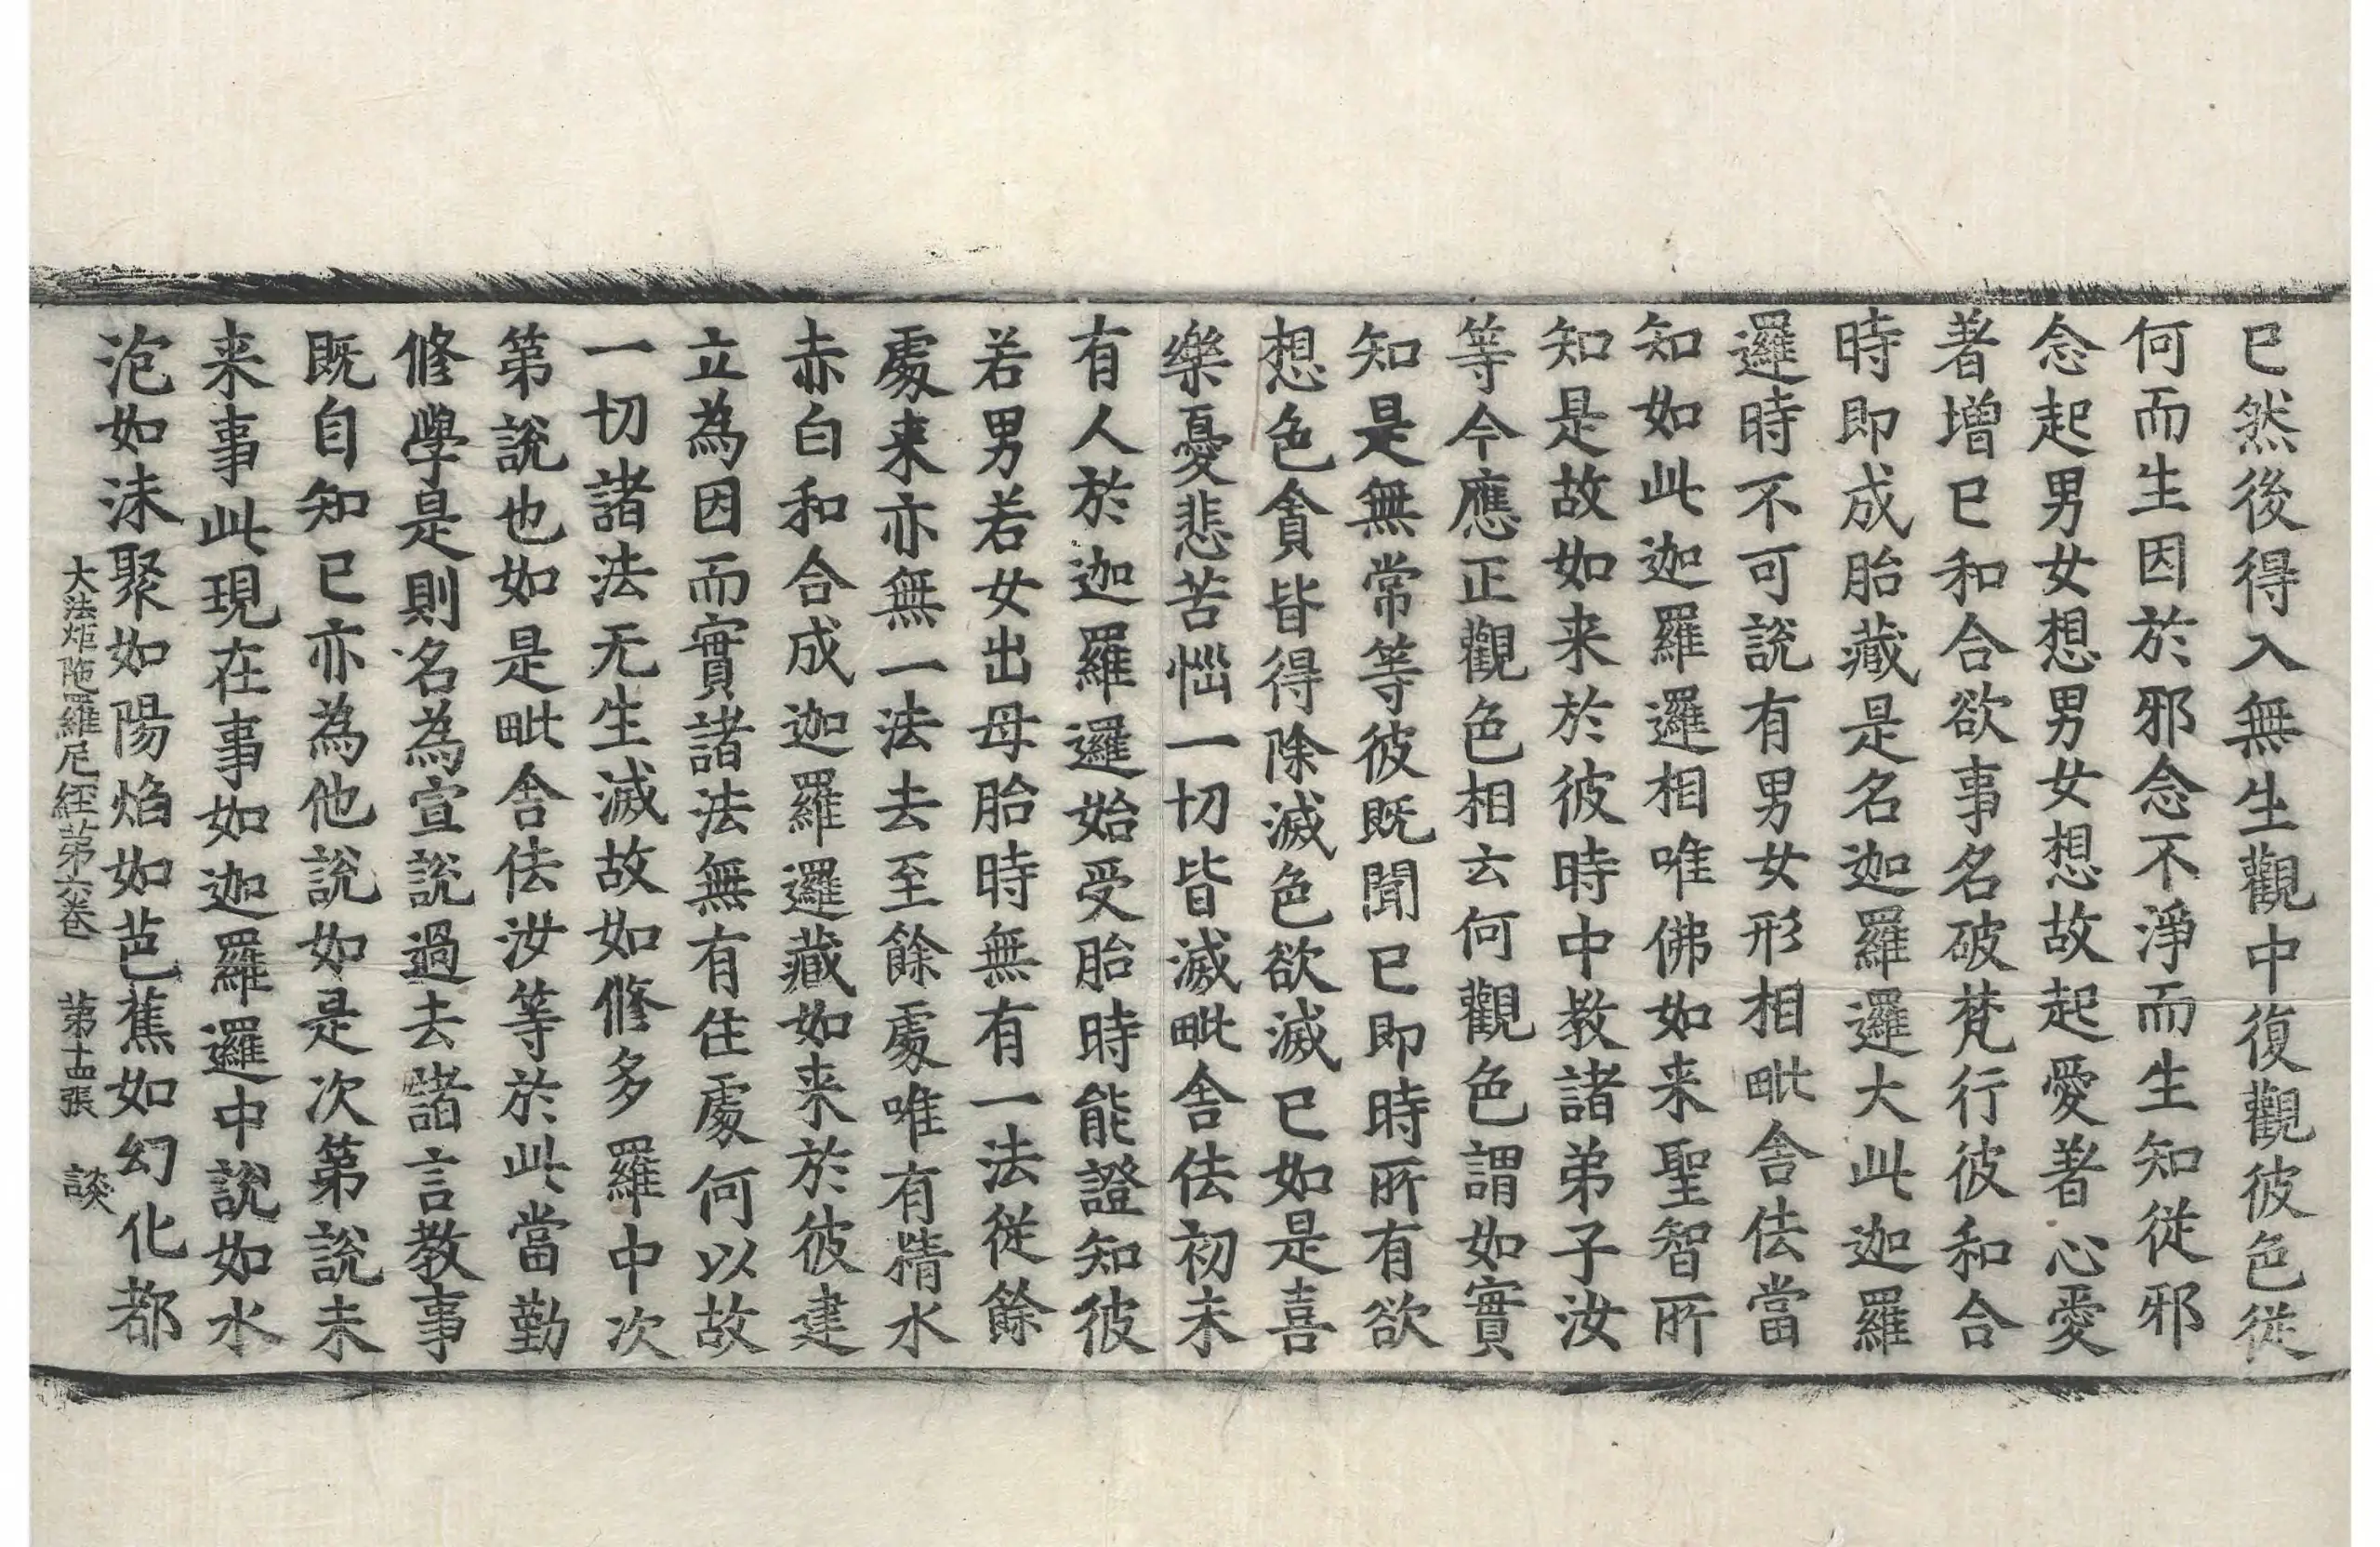 已然後得入無生觀中復觀彼色從
何而生因於邪念不淨而生知從邪
念起男女想男女想故起愛著心愛
著增已和合欲事名破梵行彼和合
時即成胎藏是名迦羅邏大此迦羅
邏時不可說有男女形相毗舍佉當
知如此迦羅邏相唯佛如来聖智所
知是故如来於彼時中教諸弟子汝
等今應正觀色相云何觀色謂如實
知是無常等彼既聞已即時所有欲
想色貪皆得除滅色欲滅已如是喜
樂憂悲苦惱一切皆滅毗舍佉初未
有人於迦羅邏始受胎時能證知彼
若男若女出母胎時無有一法從餘
處来亦無一法去至餘處唯有精水
赤白和合成迦羅邏藏如来於彼建
立為因而實諸法無有住處何以故
一切諸法无生滅故如修多羅中次
第說也如是毗舍佉汝等於此當勤
修學是則名為宣說過去諸言教事
既自知已亦為他說如是次第說未
来事此現在事如迦羅邏中說如水
泡如沫聚如陽焰如芭蕉如幻化都
大法炬陁羅尼經苐六卷　苐十五張　談